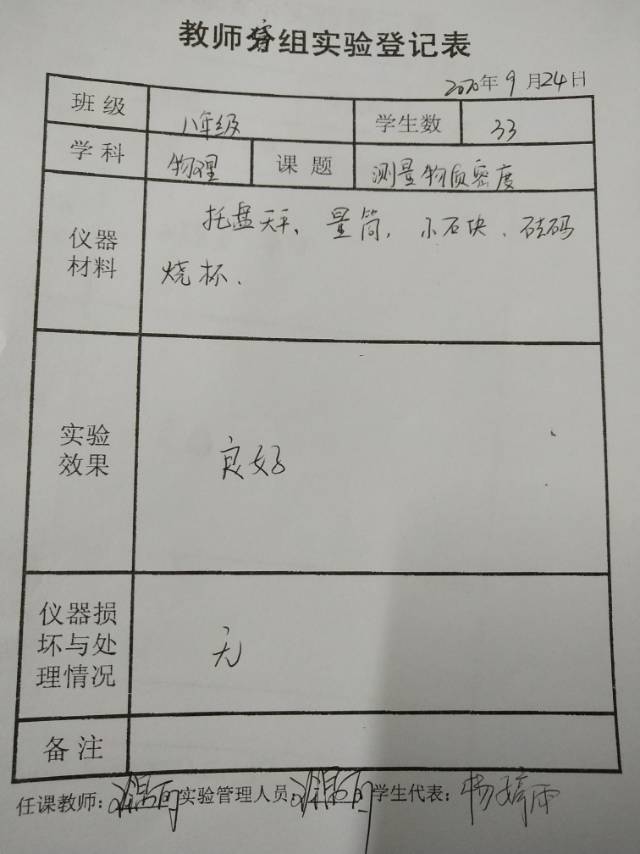 教师分组实验登记表
2020年9月24日
班级 八年级 学生数 33
学科 物理 课题 测量物质密度
仪器材料 托盘天平、量筒、小石块、砝码
烧杯.
实验效果 良好
仪器损坏与处理情况 无
备注
任课教师: 实验管理人员: 学生代表: 杨婷雨